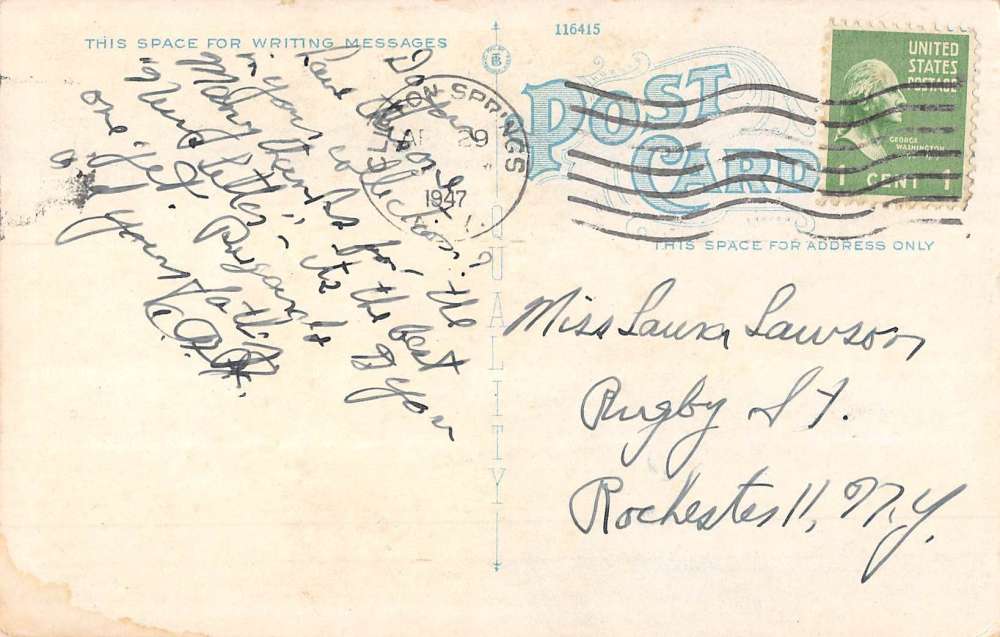 THIS SPACE FOR WRITING MESSAGES
116415
Do you
have this one
in your collection?
Many thanks for the
"News Letter", its the best
one yet. Regards to you
and yours
CLIFTON SPRINGS
29
1947
QUALITY
POST CARD
THIS SPACE FOR ADDRESS ONLY
UNITED
STATES
POSTAGE
GEORGE
WASHINGTON
1 CENT 1
Miss Laura Lawson
Rugby St.
Rochester 11, N.Y.